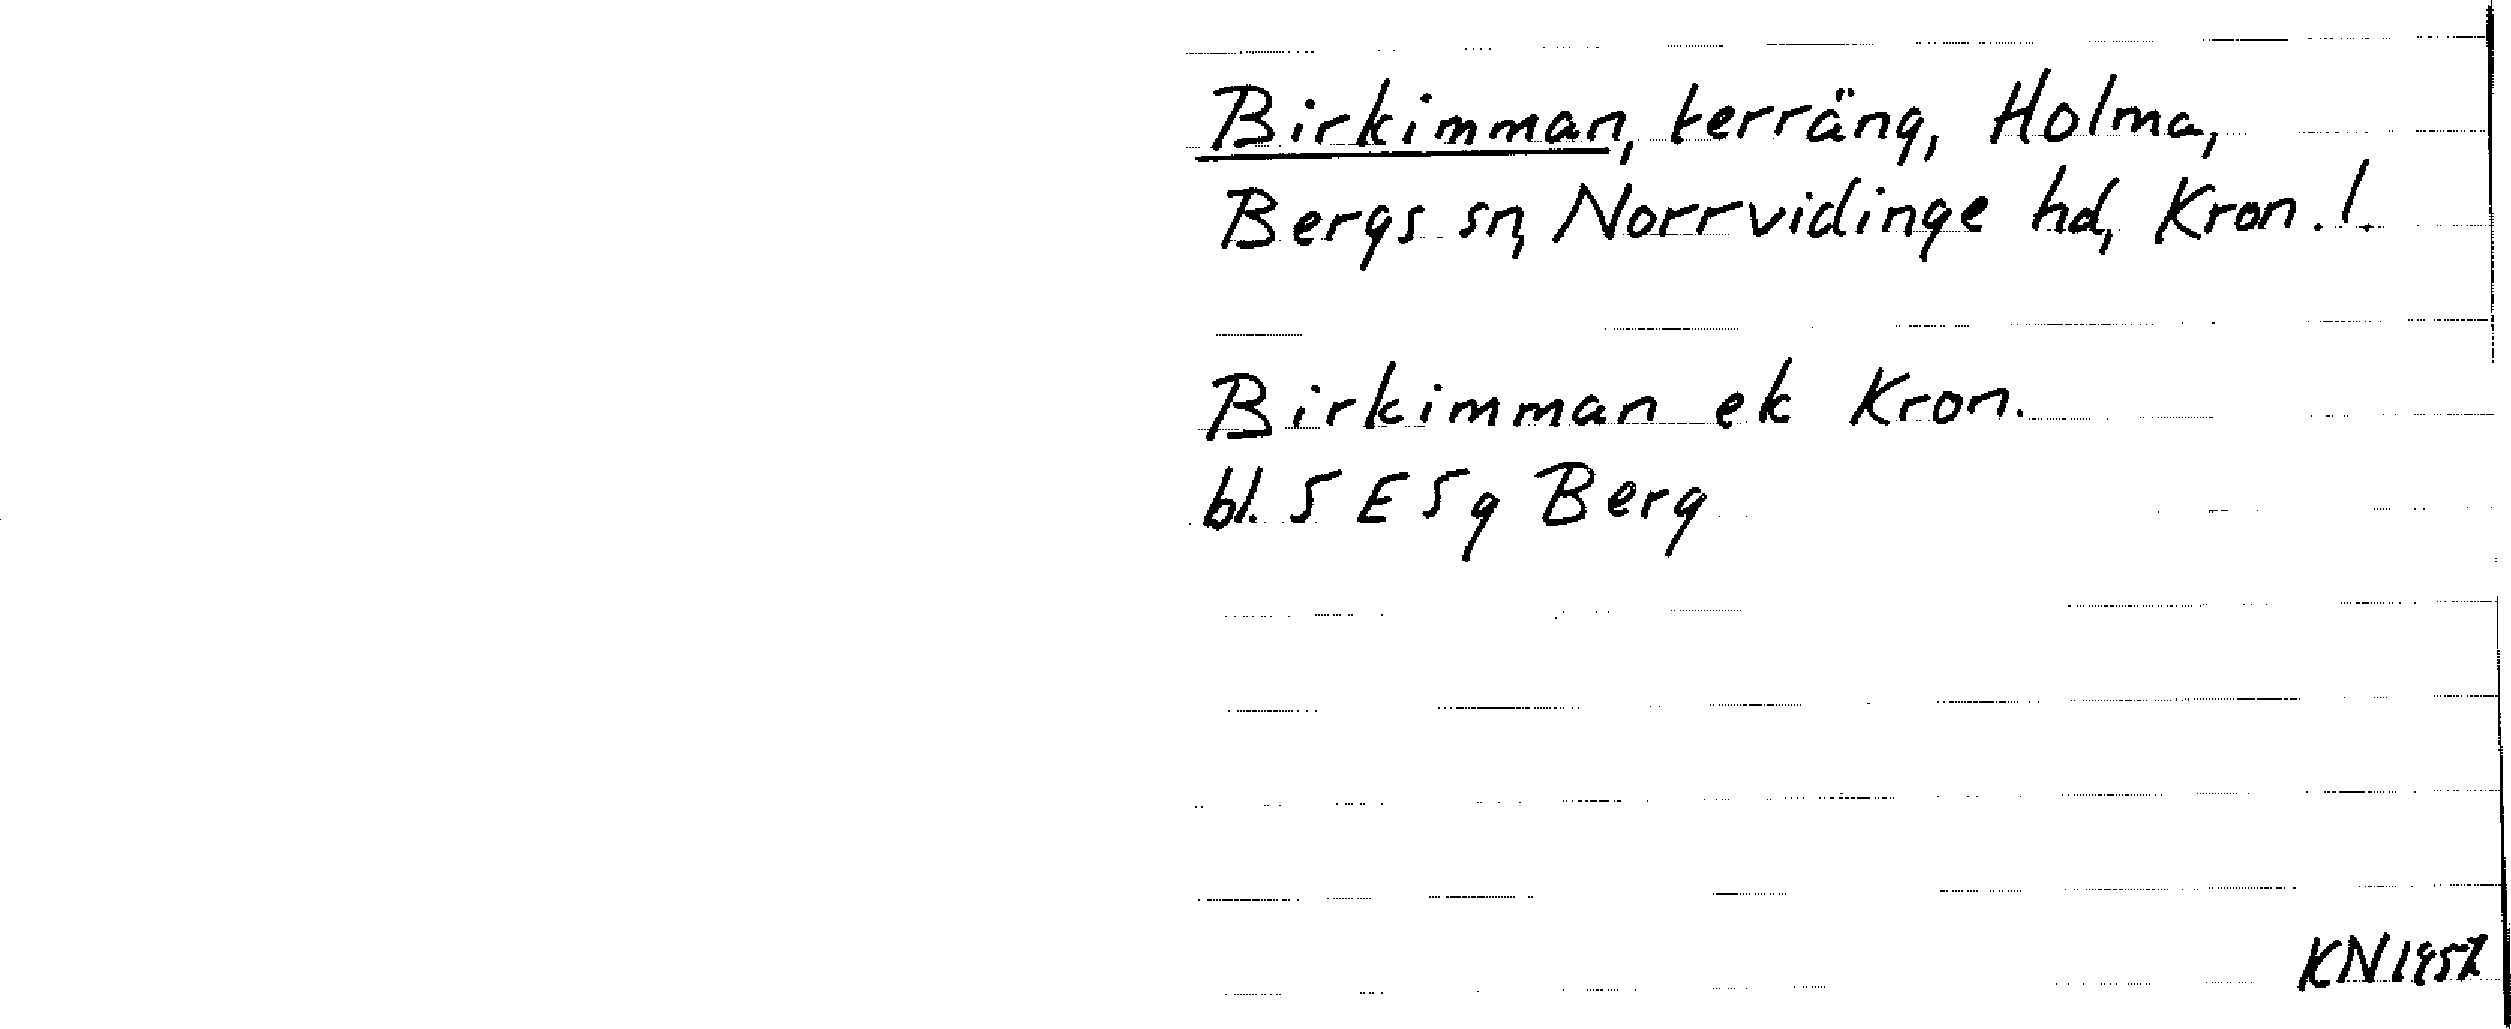 Birkimman, terräng, Holma,
Bergs sn, Norrvidinge hd, Kron. l.
Birkimman ek Kron.
bl. 5 E 5 g Berg
KN 1957